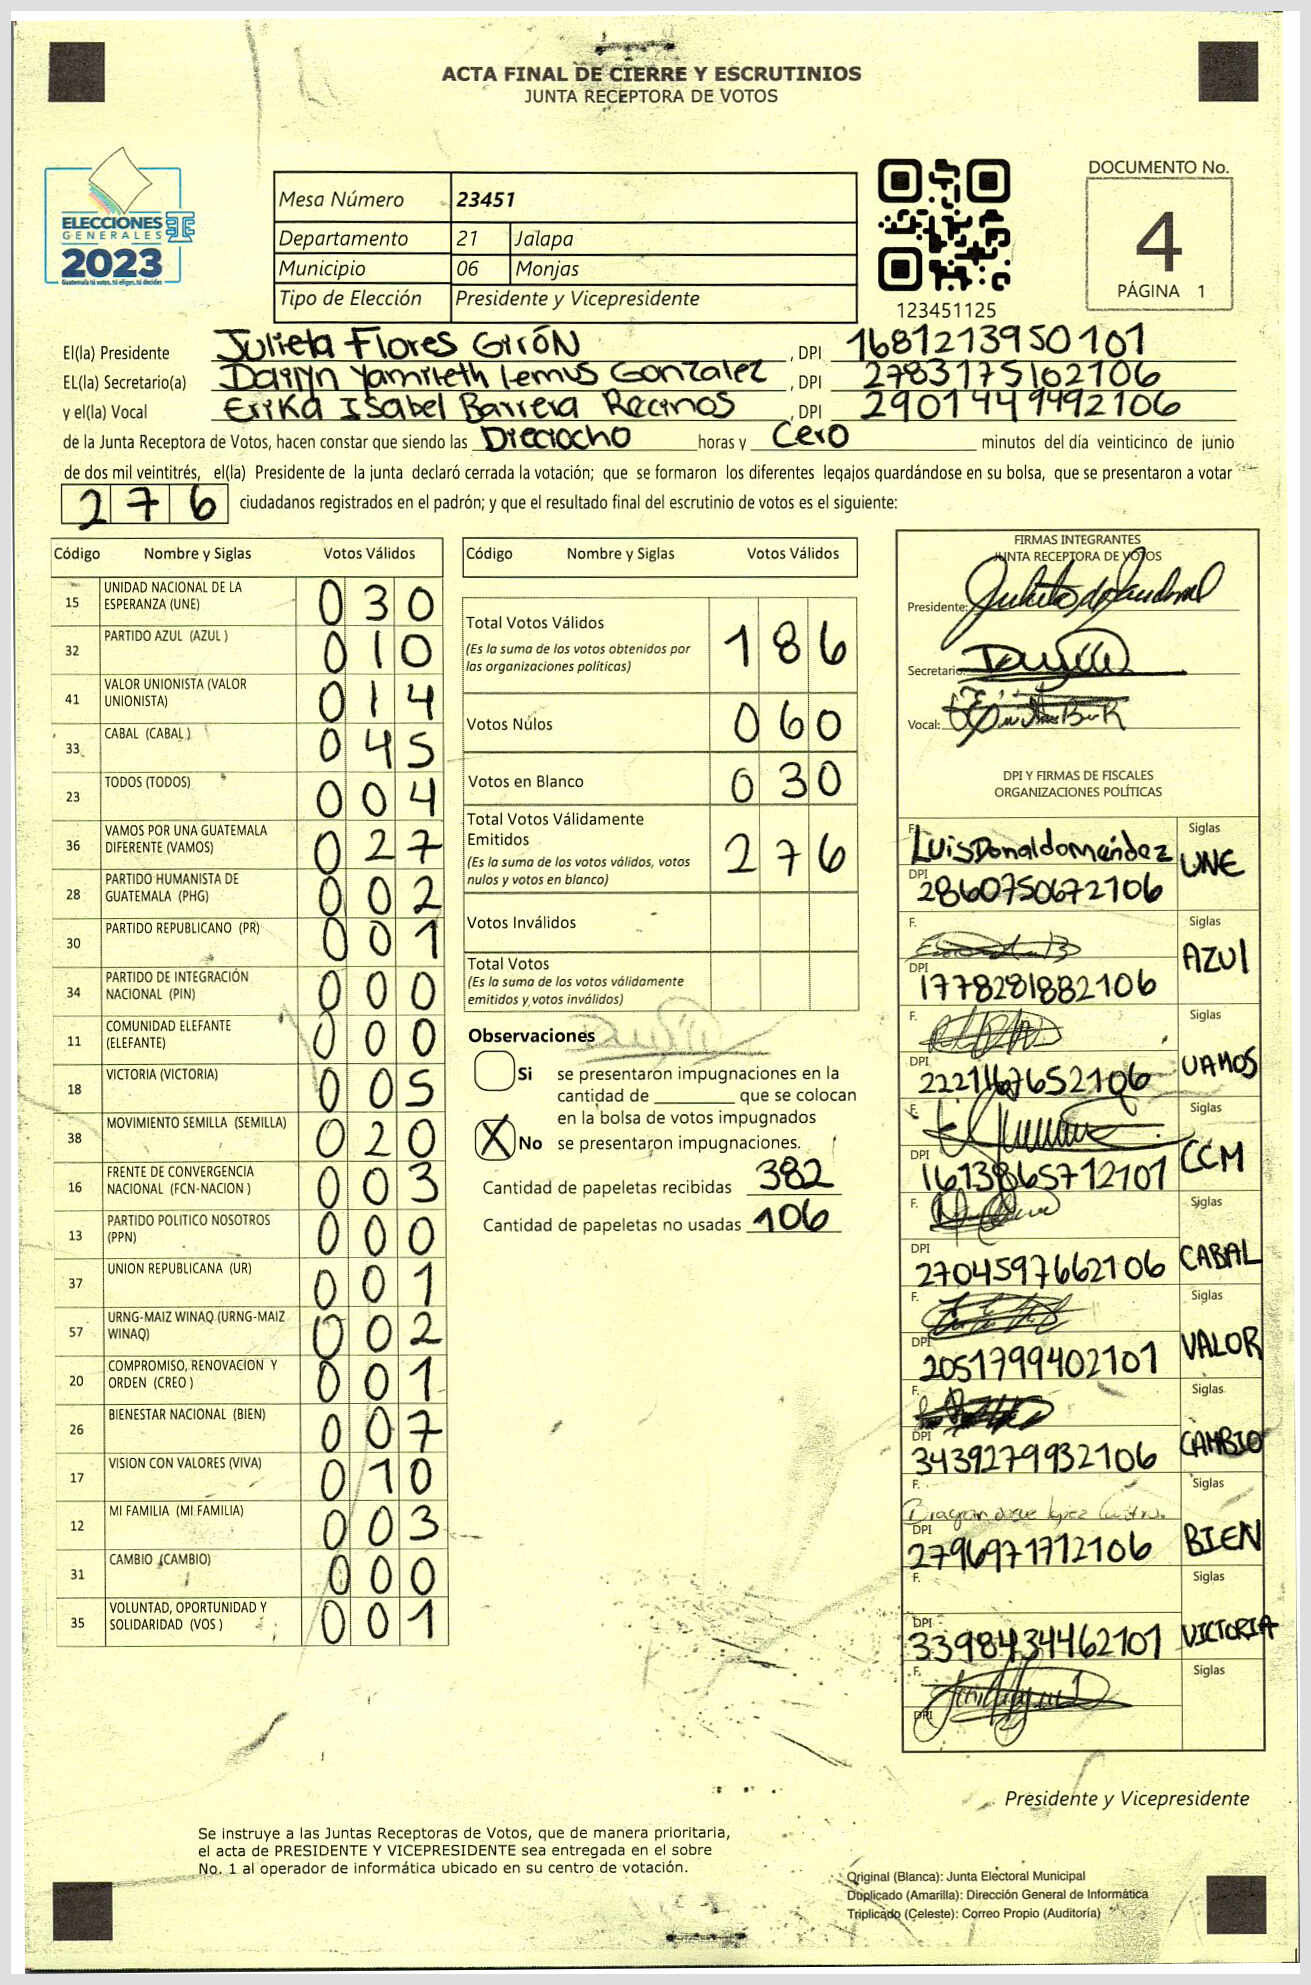 ACTA FINAL DE CIERRE Y ESCRUTINIOS
JUNTA RECEPTORA DE VOTOS
ELECCIONES
GENERALES
2023
Guatemala tú votas, tú eliges, tú decides
Mesa Número 23451
Departamento 21 Jalapa
Municipio 06 Monjas
Tipo de Elección Presidente y Vicepresidente
123451125
DOCUMENTO No.
4
PÁGINA 1
El(la) Presidente Julieta Flores Girón , DPI 1681213950101
EL(la) Secretario(a) Dairyn Yamileth Lemus Gonzalez , DPI 2783175162106
y el(la) Vocal Erika Isabel Barrera Recinos , DPI 2901449492106
de la Junta Receptora de Votos, hacen constar que siendo las Dieciocho horas y Cero minutos del día veinticinco de junio
de dos mil veintitrés, el(la) Presidente de la junta declaró cerrada la votación; que se formaron los diferentes legajos guardándose en su bolsa, que se presentaron a votar
276 ciudadanos registrados en el padrón; y que el resultado final del escrutinio de votos es el siguiente:
Código Nombre y Siglas Votos Válidos
15 UNIDAD NACIONAL DE LA ESPERANZA (UNE) 030
32 PARTIDO AZUL (AZUL ) 010
41 VALOR UNIONISTA (VALOR UNIONISTA) 014
33 CABAL (CABAL ) 045
23 TODOS (TODOS) 004
36 VAMOS POR UNA GUATEMALA DIFERENTE (VAMOS) 027
28 PARTIDO HUMANISTA DE GUATEMALA (PHG) 002
30 PARTIDO REPUBLICANO (PR) 001
34 PARTIDO DE INTEGRACIÓN NACIONAL (PIN) 000
11 COMUNIDAD ELEFANTE (ELEFANTE) 000
18 VICTORIA (VICTORIA) 005
38 MOVIMIENTO SEMILLA (SEMILLA) 020
16 FRENTE DE CONVERGENCIA NACIONAL (FCN-NACION ) 003
13 PARTIDO POLITICO NOSOTROS (PPN) 000
37 UNION REPUBLICANA (UR) 001
57 URNG-MAIZ WINAQ (URNG-MAIZ WINAQ) 002
20 COMPROMISO, RENOVACION Y ORDEN (CREO ) 001
26 BIENESTAR NACIONAL (BIEN) 007
17 VISION CON VALORES (VIVA) 010
12 MI FAMILIA (MI FAMILIA) 003
31 CAMBIO (CAMBIO) 000
35 VOLUNTAD, OPORTUNIDAD Y SOLIDARIDAD (VOS ) 001
Código Nombre y Siglas Votos Válidos
Total Votos Válidos 186
(Es la suma de los votos obtenidos por
las organizaciones políticas)
Votos Nulos 060
Votos en Blanco 030
Total Votos Válidamente
Emitidos 276
(Es la suma de los votos válidos, votos
nulos y votos en blanco)
Votos Inválidos
Total Votos
(Es la suma de los votos válidamente
emitidos y votos inválidos)
Observaciones
Si se presentaron impugnaciones en la
cantidad de ________ que se colocan
en la bolsa de votos impugnados
X No se presentaron impugnaciones.
Cantidad de papeletas recibidas 382
Cantidad de papeletas no usadas 106
FIRMAS INTEGRANTES
JUNTA RECEPTORA DE VOTOS
Presidente:
Secretario:
Vocal:
DPI Y FIRMAS DE FISCALES
ORGANIZACIONES POLÍTICAS
F. Luis Donaldo Méndez Siglas
DPI 2860750672106 UNE
F. Siglas
DPI 1778281882106 AZUl
F. Siglas
DPI 2221467652106 VAMOS
F. Siglas
DPI 1613865712101 CCM
F. Siglas
DPI 2704597662106 CABAL
F. Siglas
DPI 2051799402101 VALOR
F. Siglas
DPI 3439279932106 CAMBIO
F. Siglas
DPI 2796971712106 BIEN
F. Siglas
DPI 3398434462101 VICTORIA
F. Siglas
DPI
Presidente y Vicepresidente
Se instruye a las Juntas Receptoras de Votos, que de manera prioritaria,
el acta de PRESIDENTE Y VICEPRESIDENTE sea entregada en el sobre
No. 1 al operador de informática ubicado en su centro de votación.
Original (Blanca): Junta Electoral Municipal
Duplicado (Amarilla): Dirección General de Informática
Triplicado (Celeste): Correo Propio (Auditoría)